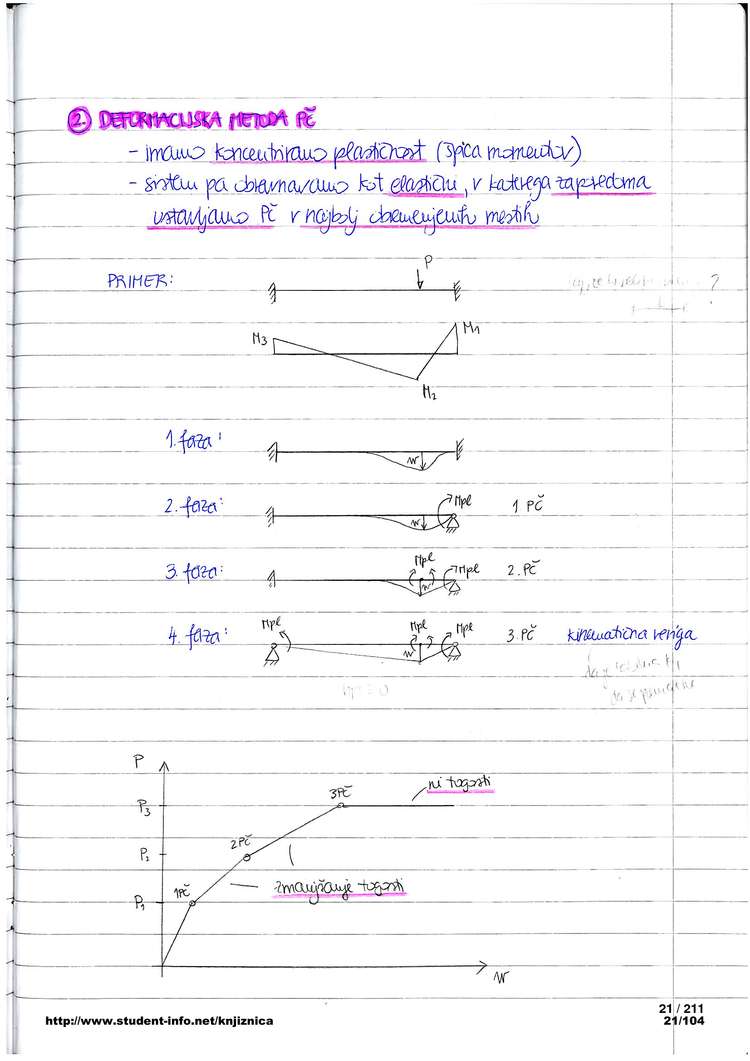 2. DEFORMACIJSKA METODA PČ
- imamo koncentrirano plastičnost (špica momentov)
- sistem pa obravnavamo kot elastični, v katerega zapredoma
vstavljamo PČ v najbolj obremenjenih mestih
PRIMER:
P
?
M3
M1
M2
1. faza:
w
2. faza:
w
Mpl
1 PČ
3. faza:
Mpl
w
Mpl
2. PČ
4. faza:
Mpl
Mpl
w
Mpl
3. PČ
kinematična veriga
P
P3
3PČ
ni togosti
P2
2PČ
P1
1PČ
zmanjšanje togosti
w
http://www.student-info.net/knjiznica
21 / 211
21/104